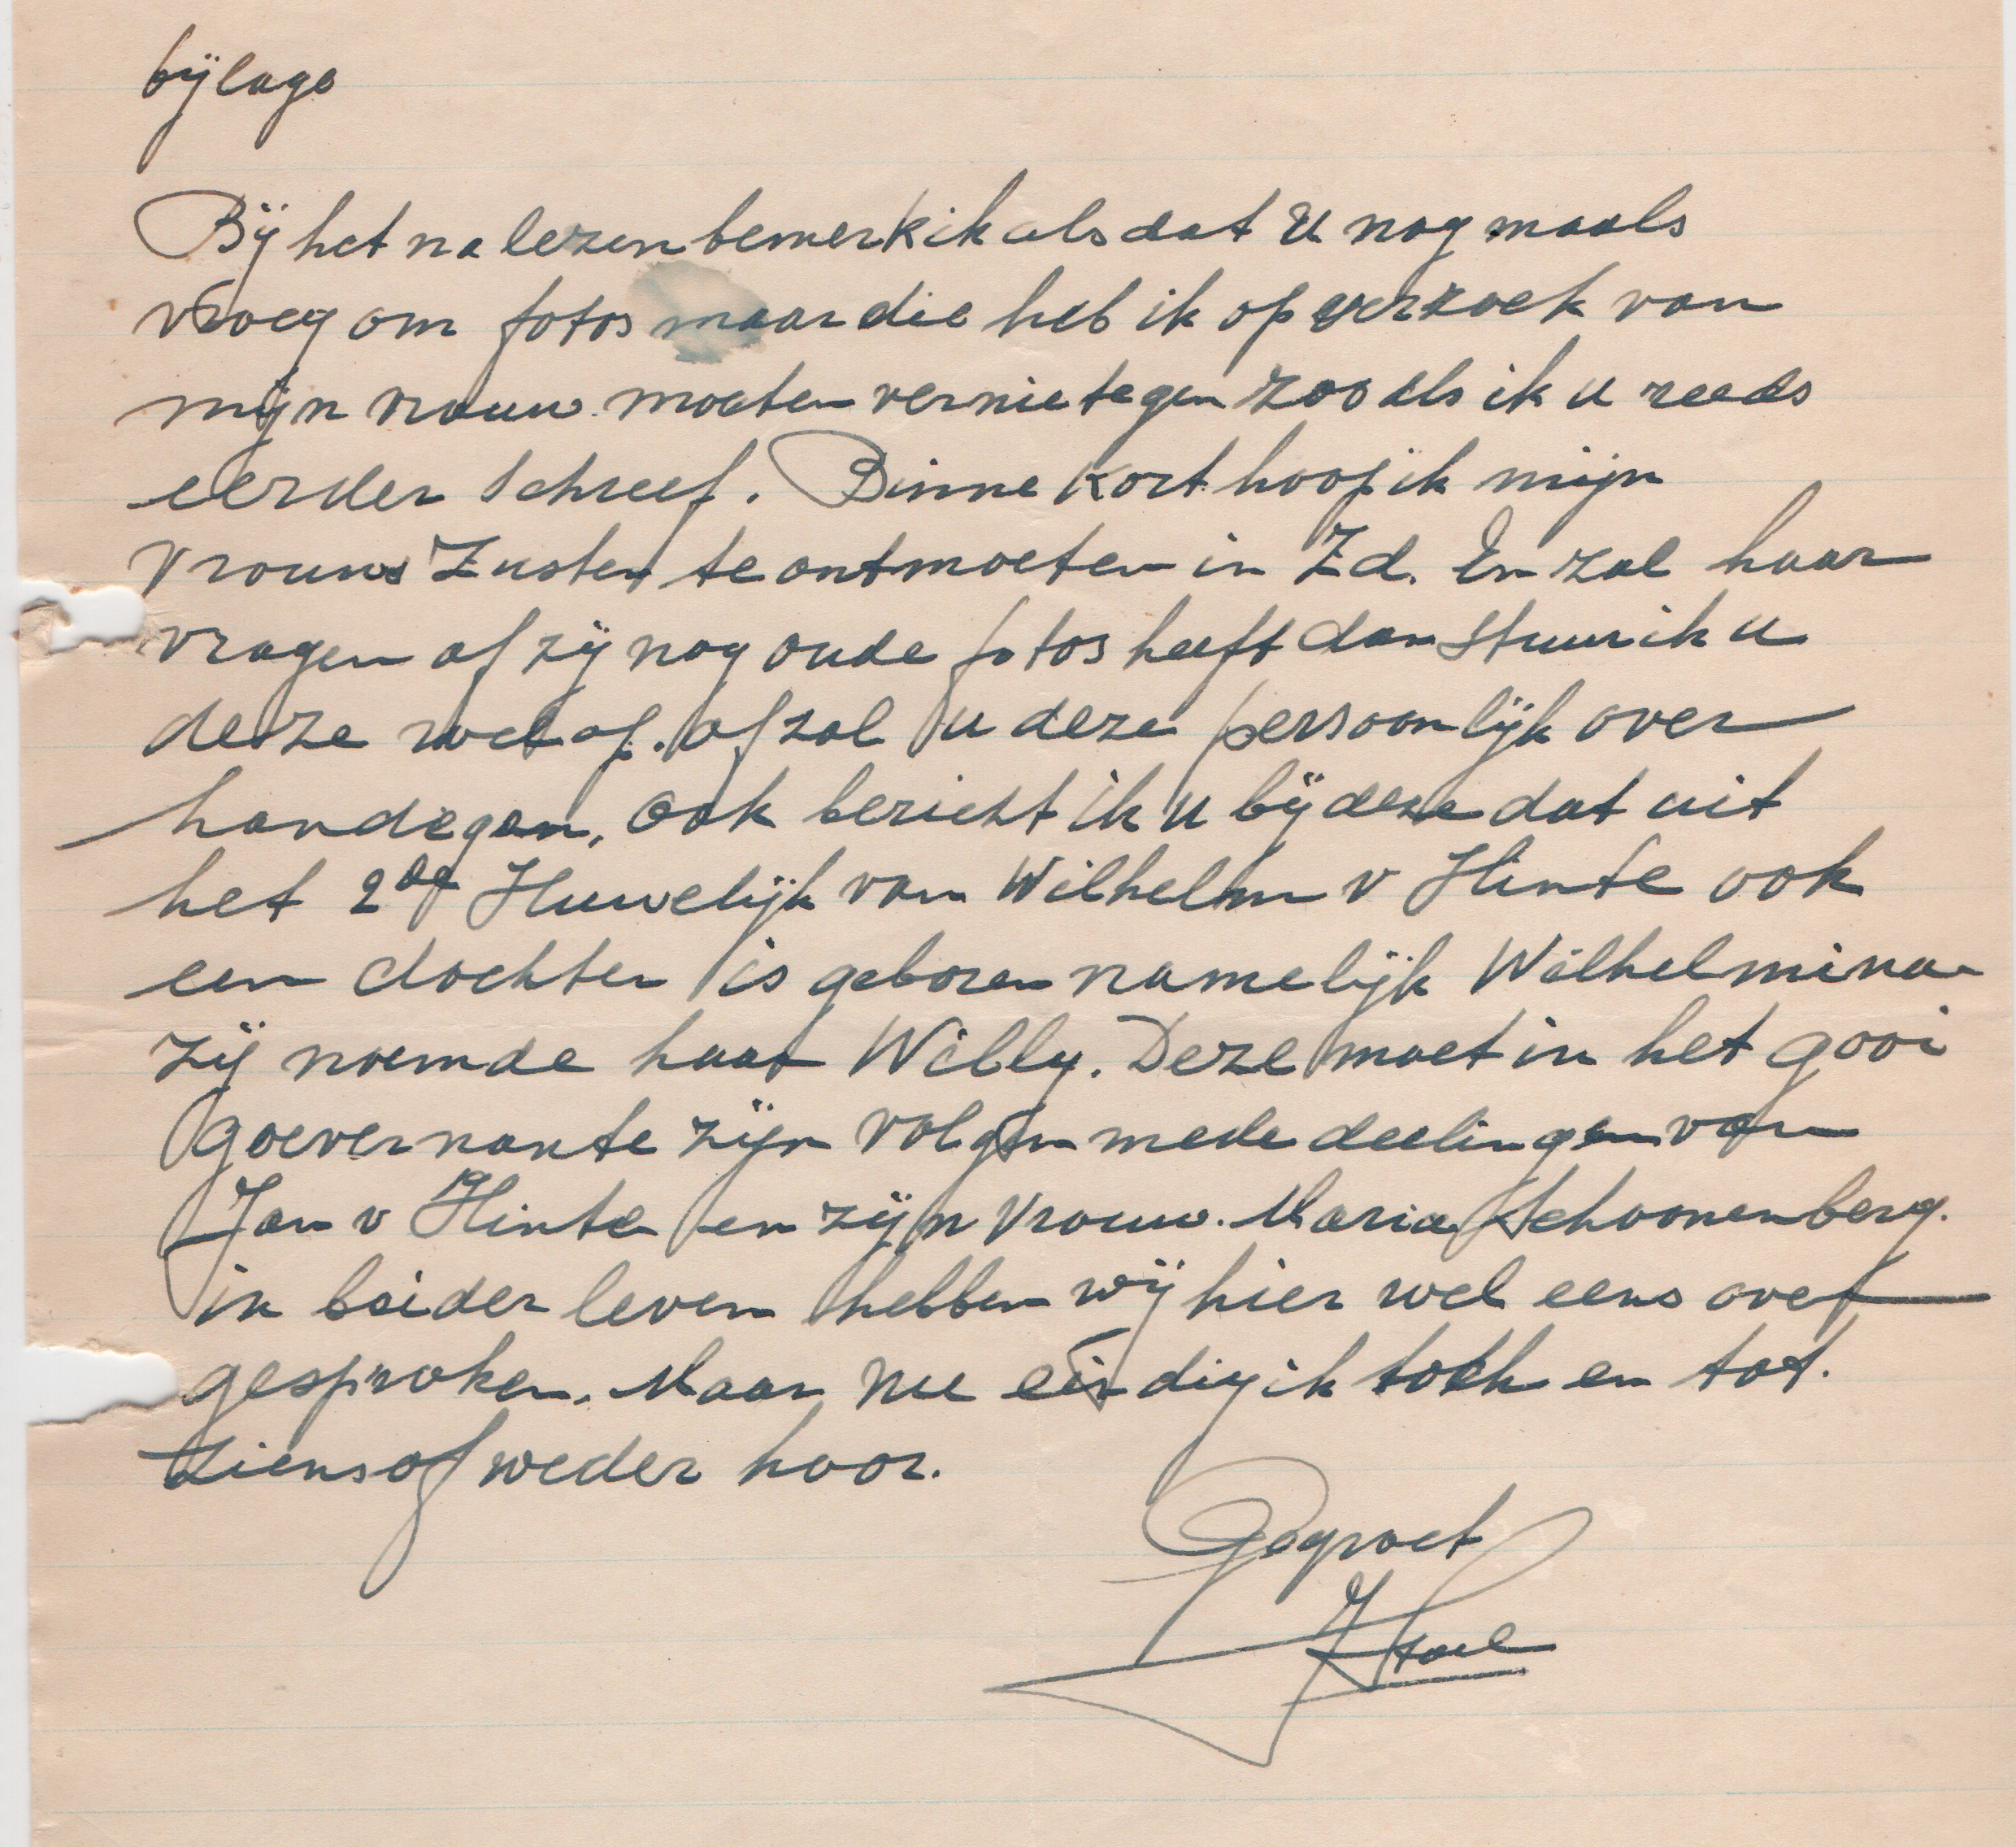 bijlage
Bij het na lezen bemerk ik als dat U nog maals
vroeg om fotos maar die heb ik op verzoek van
mijn vrouw. moeten vernietegen zooals ik u reeds
eerder schreef. Binne kort hoop ik mijn
vrouws Zuster te ontmoeten in Zd. En zal haar
vragen of zij nog oude fotos heeft dan stuur ik u
deze wel op. of zal u deze persoonlijk over
handegen. Ook bericht ik u bij deze dat uit
het 2de Huwelijk van Wilhelm v Hinte ook
een dochter is geboren namelijk Wilhelmina
zij noemde haar Willy. Deze moet in het gooi
goevernante zijn volgen mede deelingen van
Jan v Hinte en zijn vrouw. Maria Schoonenberg.
in beider leven hebben wij hier wel eens over
gesproken. Maar nu eindig ik toch en tot.
ziens of weder hoor.
Gegroet